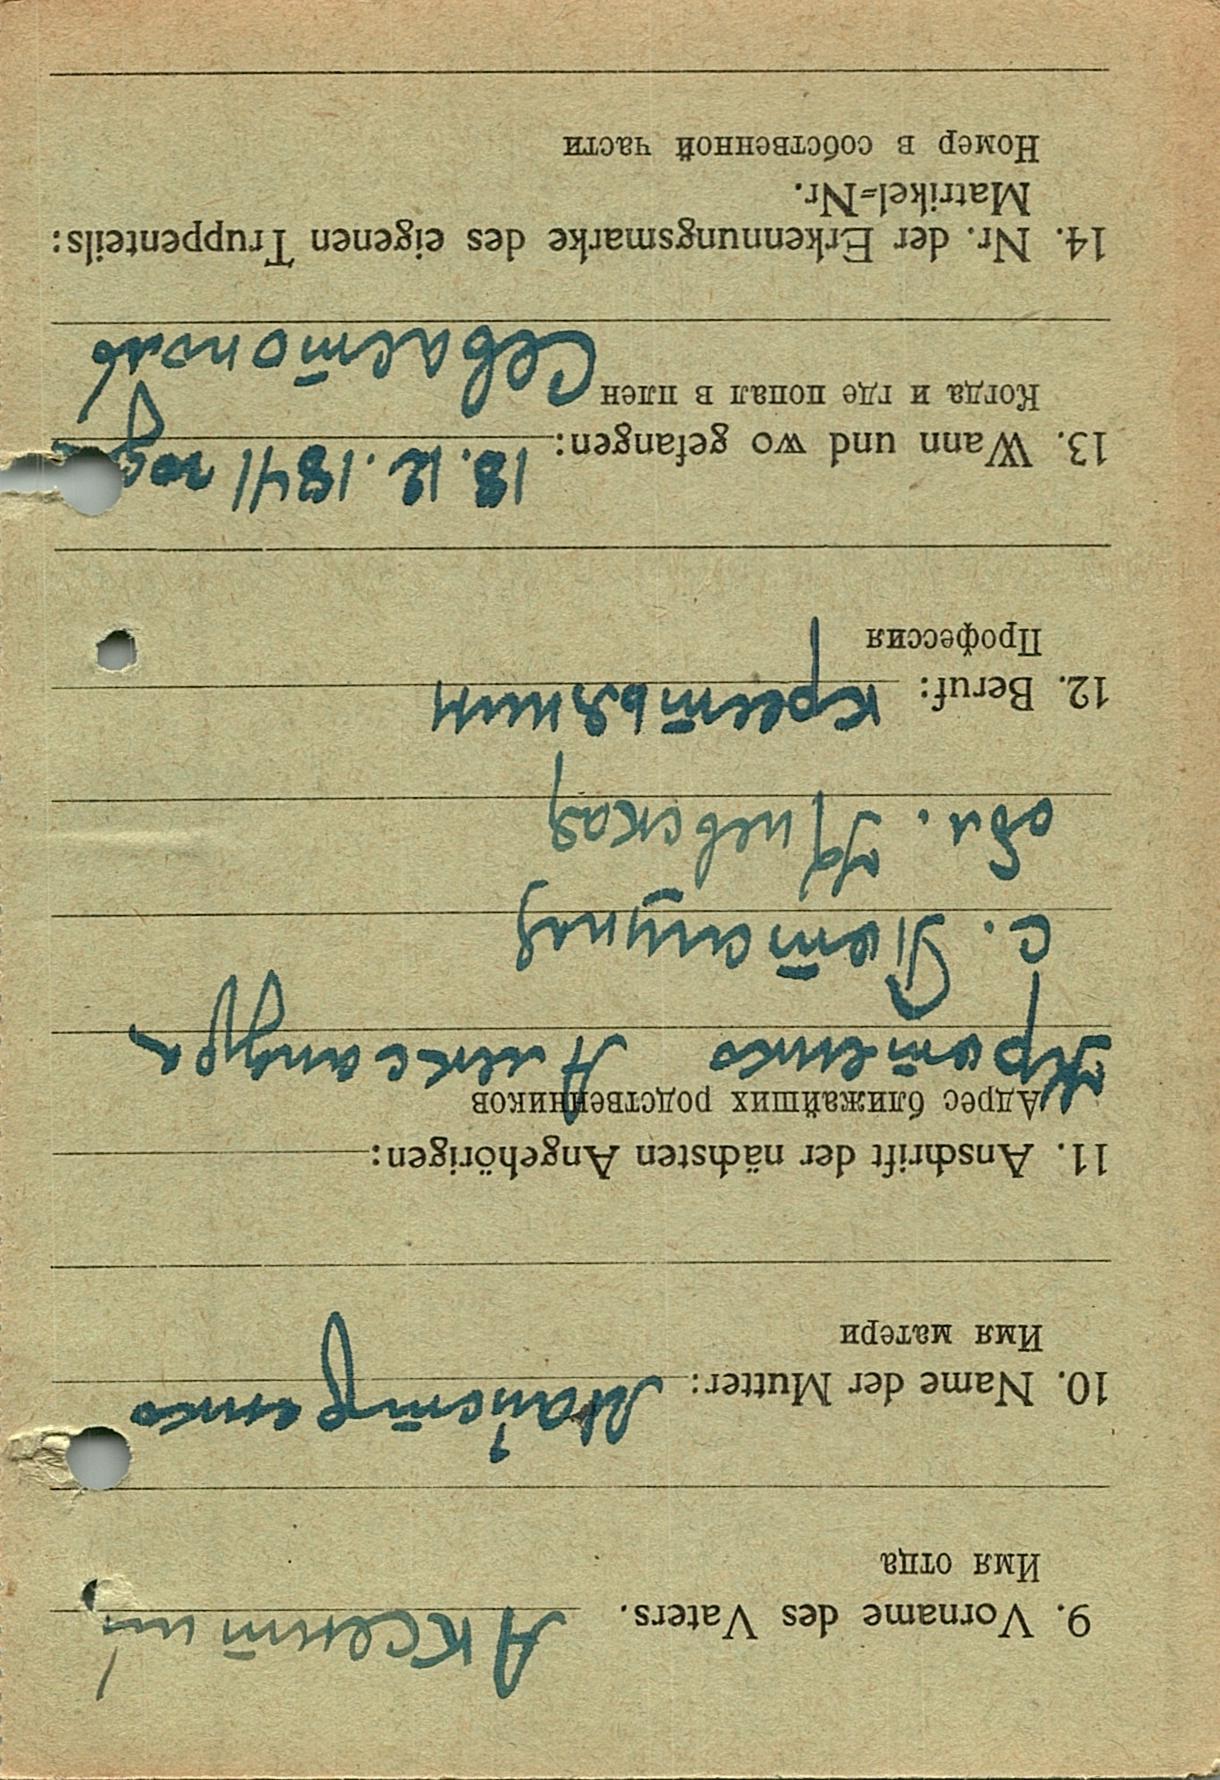 9. Vorname des Vaters. Аксентий
Имя отца
10. Name der Mutter: Майстренко
Имя матери
11. Anschrift der nächsten Angehörigen:
Адрес ближайших родственников
Кротенко Александра
с.
обл. Киевская
12. Beruf: крестьянин
Профессия
13. Wann und wo gefangen: 18.12.1941 года
Когда и где попал в плен Севастополь
14. Nr. der Erkennungsmarke des eigenen Truppenteils:
Matrikel=Nr.
Номер в собственной части